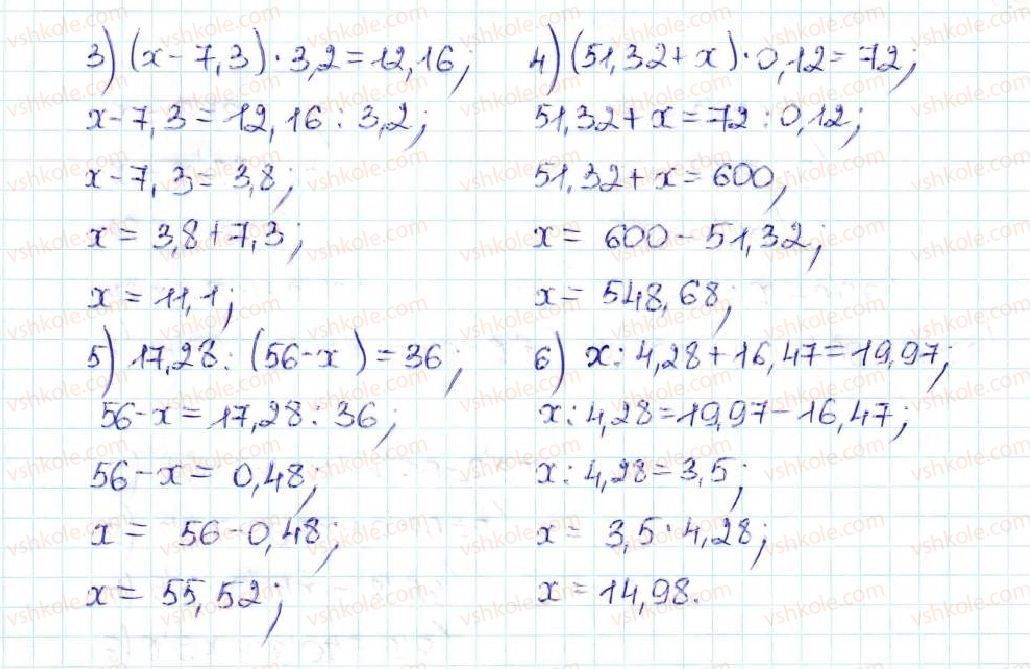 3) (x - 7,3) · 3,2 = 12,16;
x - 7,3 = 12,16 : 3,2;
x - 7,3 = 3,8;
x = 3,8 + 7,3;
x = 11,1;
4) (51,32 + x) · 0,12 = 72;
51,32 + x = 72 : 0,12;
51,32 + x = 600;
x = 600 - 51,32;
x = 548,68;
5) 17,28 : (56 - x) = 36;
56 - x = 17,28 : 36;
56 - x = 0,48;
x = 56 - 0,48;
x = 55,52;
6) x : 4,28 + 16,47 = 19,97;
x : 4,28 = 19,97 - 16,47;
x : 4,28 = 3,5;
x = 3,5 · 4,28;
x = 14,98.
vshkole.com